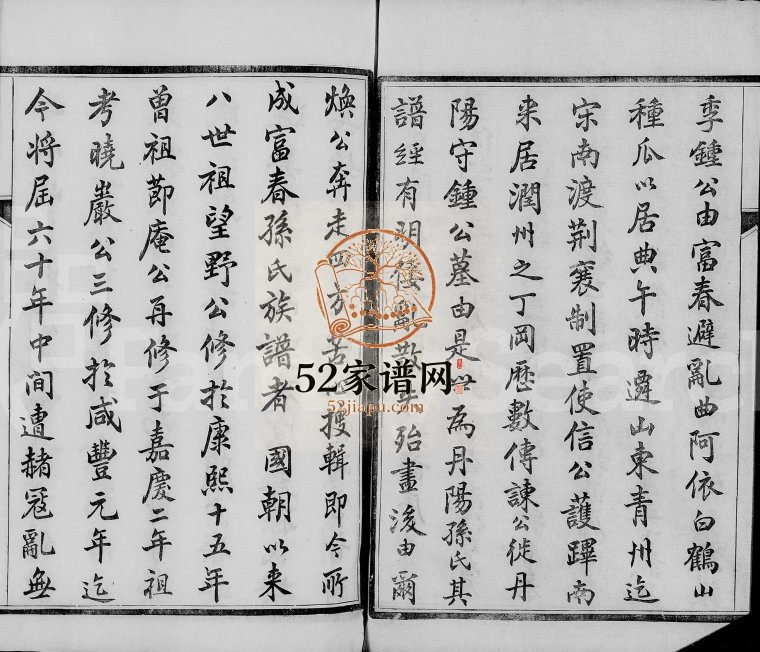 季鍾公由富春避亂曲阿依白鶴山
種瓜以居典午時遷山東青州迄
宋南渡荆襄制置使信公護蹕南
来居潤州之丁岡歴數傳諫公徙丹
陽守鍾公墓由是世為丹陽孫氏其
譜經有明倭亂散失殆盡後由爾
煥公奔走四方苦心搜輯即今所
成富春孫氏族譜者國朝以来
八世祖望野公修於康熙十五年
曽祖節庵公再修于嘉慶二年祖
考曉巖公三修於咸豐元年迄
今將屆六十年中間遭赭冦亂無
52家谱网
52jiapu.com